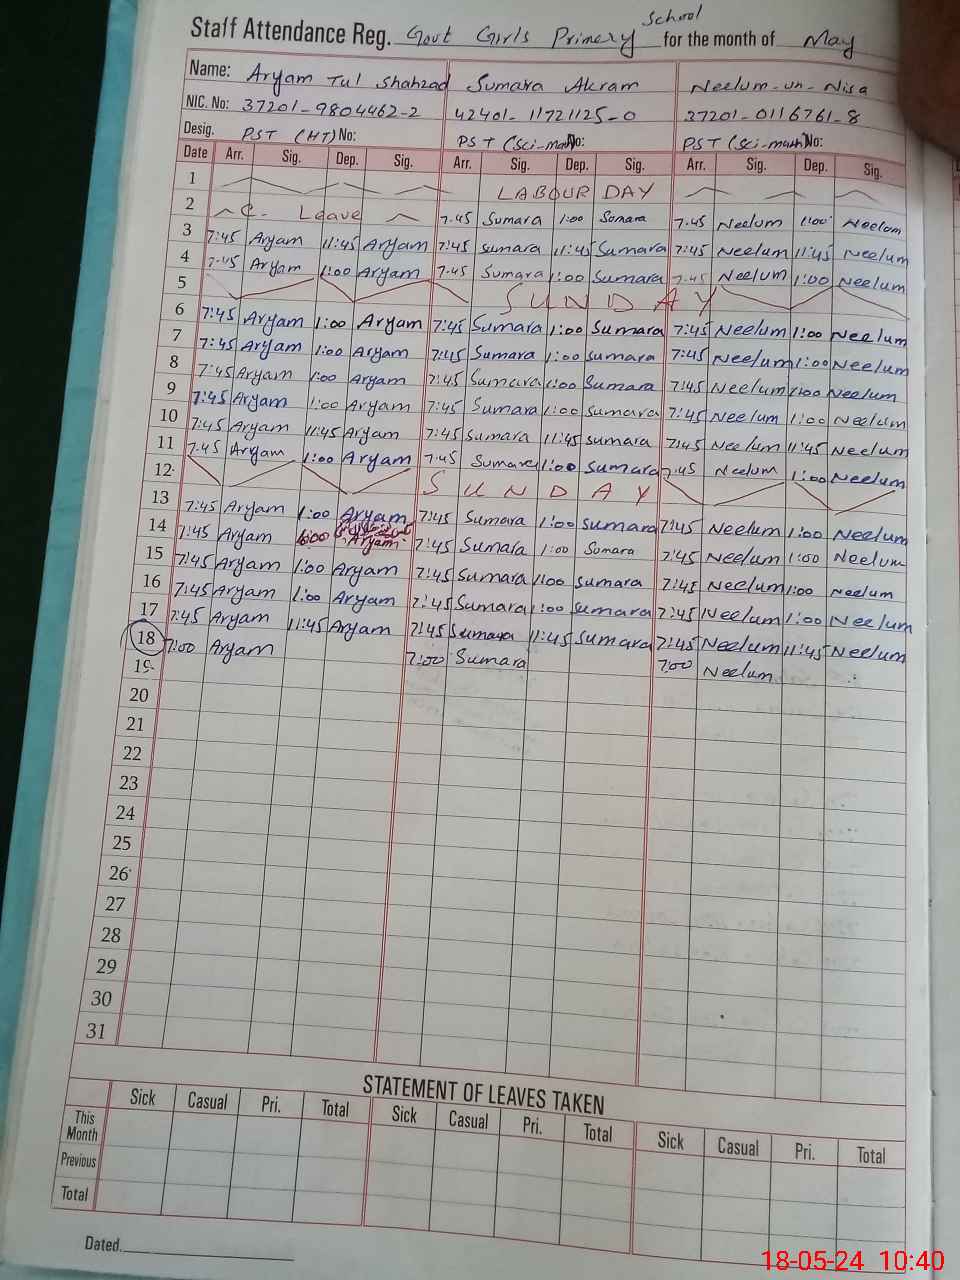 School
Staff Attendance Reg. Govt Girls Primery for the month of May
Name: Aryam Tul Shahzad Sumara Akram Neelum-un-Nisa
NIC. No: 37201-9804462-2 42401-11721125-0 37201-0116761-8
Desig. PST (HT) No: PST (Sci-math) No: PST (Sci-math) No:
Date Arr. Sig. Dep. Sig. Arr. Sig. Dep. Sig. Arr. Sig. Dep. Sig.
1 LABOUR DAY
2 C. Leave 7.45 Sumara 1:00 Sumara 7.45 Neelum 1:00 Neelum
3 7:45 Aryam 11:45 Aryam 7:45 Sumara 11:45 Sumara 7:45 Neelum 11:45 Neelum
4 7.45 Aryam 1:00 Aryam 7.45 Sumara 1:00 Sumara 7.45 Neelum 1:00 Neelum
5 SUNDAY
6 7:45 Aryam 1:00 Aryam 7:45 Sumara 1:00 Sumara 7:45 Neelum 1:00 Neelum
7 7:45 Aryam 1:00 Aryam 7:45 Sumara 1:00 Sumara 7:45 Neelum 1:00 Neelum
8 7:45 Aryam 1:00 Aryam 7:45 Sumara 1:00 Sumara 7:45 Neelum 1:00 Neelum
9 7:45 Aryam 1:00 Aryam 7:45 Sumara 1:00 Sumara 7:45 Neelum 1:00 Neelum
10 7:45 Aryam 11:45 Aryam 7:45 Sumara 11:45 Sumara 7:45 Neelum 11:45 Neelum
11 7.45 Aryam 1:00 Aryam 7.45 Sumara 1:00 Sumara 7:45 Neelum 1:00 Neelum
12 SUNDAY
13 7:45 Aryam 1:00 Aryam 7:45 Sumara 1:00 Sumara 7:45 Neelum 1:00 Neelum
14 7:45 Aryam Aryam 7:45 Sumara 1:00 Sumara 7:45 Neelum 1:00 Neelum
15 7:45 Aryam 1:00 Aryam 7:45 Sumara 1:00 Sumara 7:45 Neelum 1:00 Neelum
16 7:45 Aryam 1:00 Aryam 7:45 Sumara 1:00 Sumara 7:45 Neelum 1:00 Neelum
17 7:45 Aryam 11:45 Aryam 7:45 Sumara 11:45 Sumara 7:45 Neelum 11:45 Neelum
18 7:00 Aryam 7:00 Sumara 7:00 Neelum
19
20
21
22
23
24
25
26
27
28
29
30
31
STATEMENT OF LEAVES TAKEN
Sick Casual Pri. Total Sick Casual Pri. Total Sick Casual Pri. Total
This Month
Previous
Total
Dated.
18-05-24 10:40